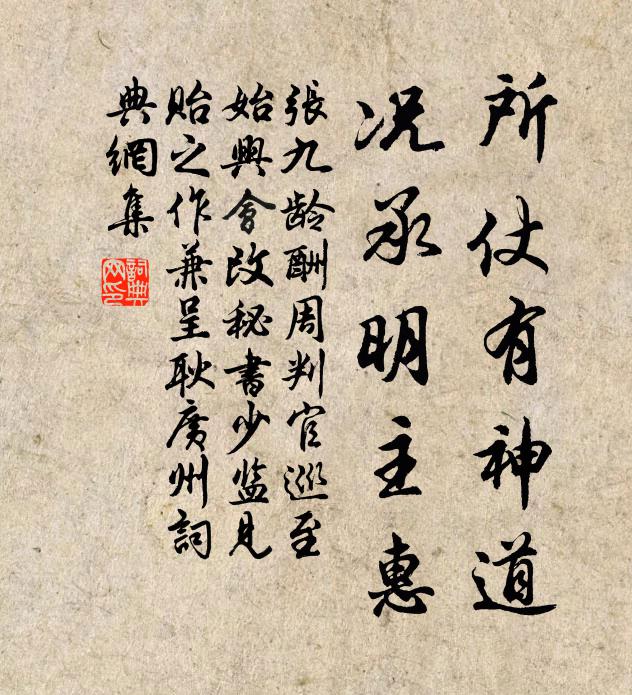 所仗有神道
况承明主惠
張九龄酬周判官巡至
始興會改秘書少監見
貽之作兼呈耿廣州詞
典網集
詞典
网印